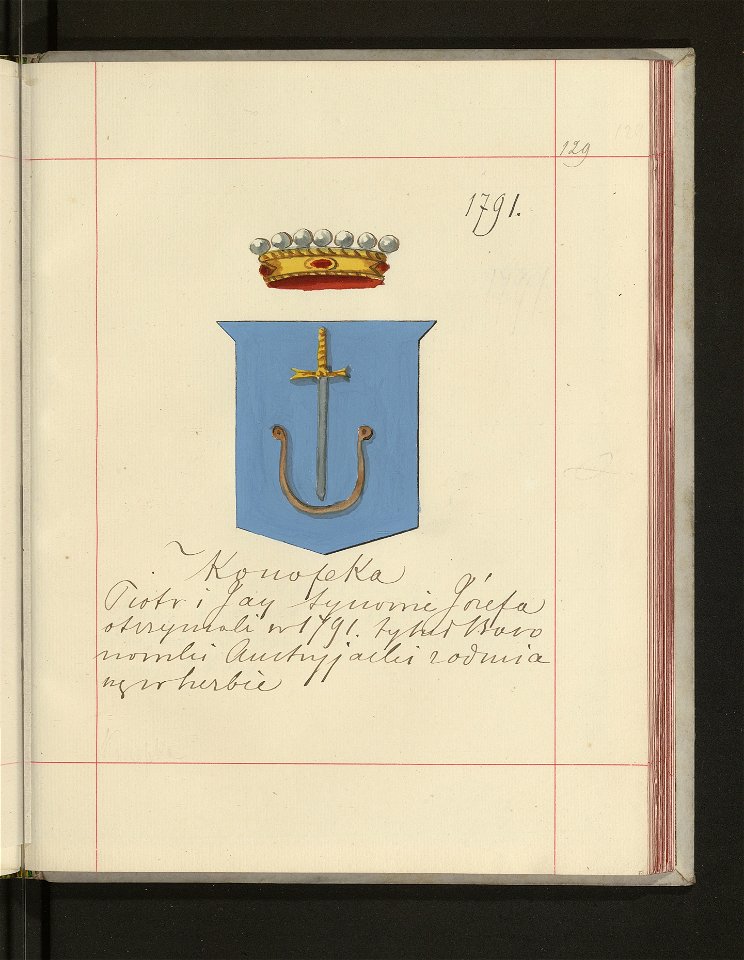 129
1791.
Konopka
Piotr i Jan synowie Józefa
otrzymali w 1791. tytuł Baro
nowski Austryjacki z odmia
ną w herbie